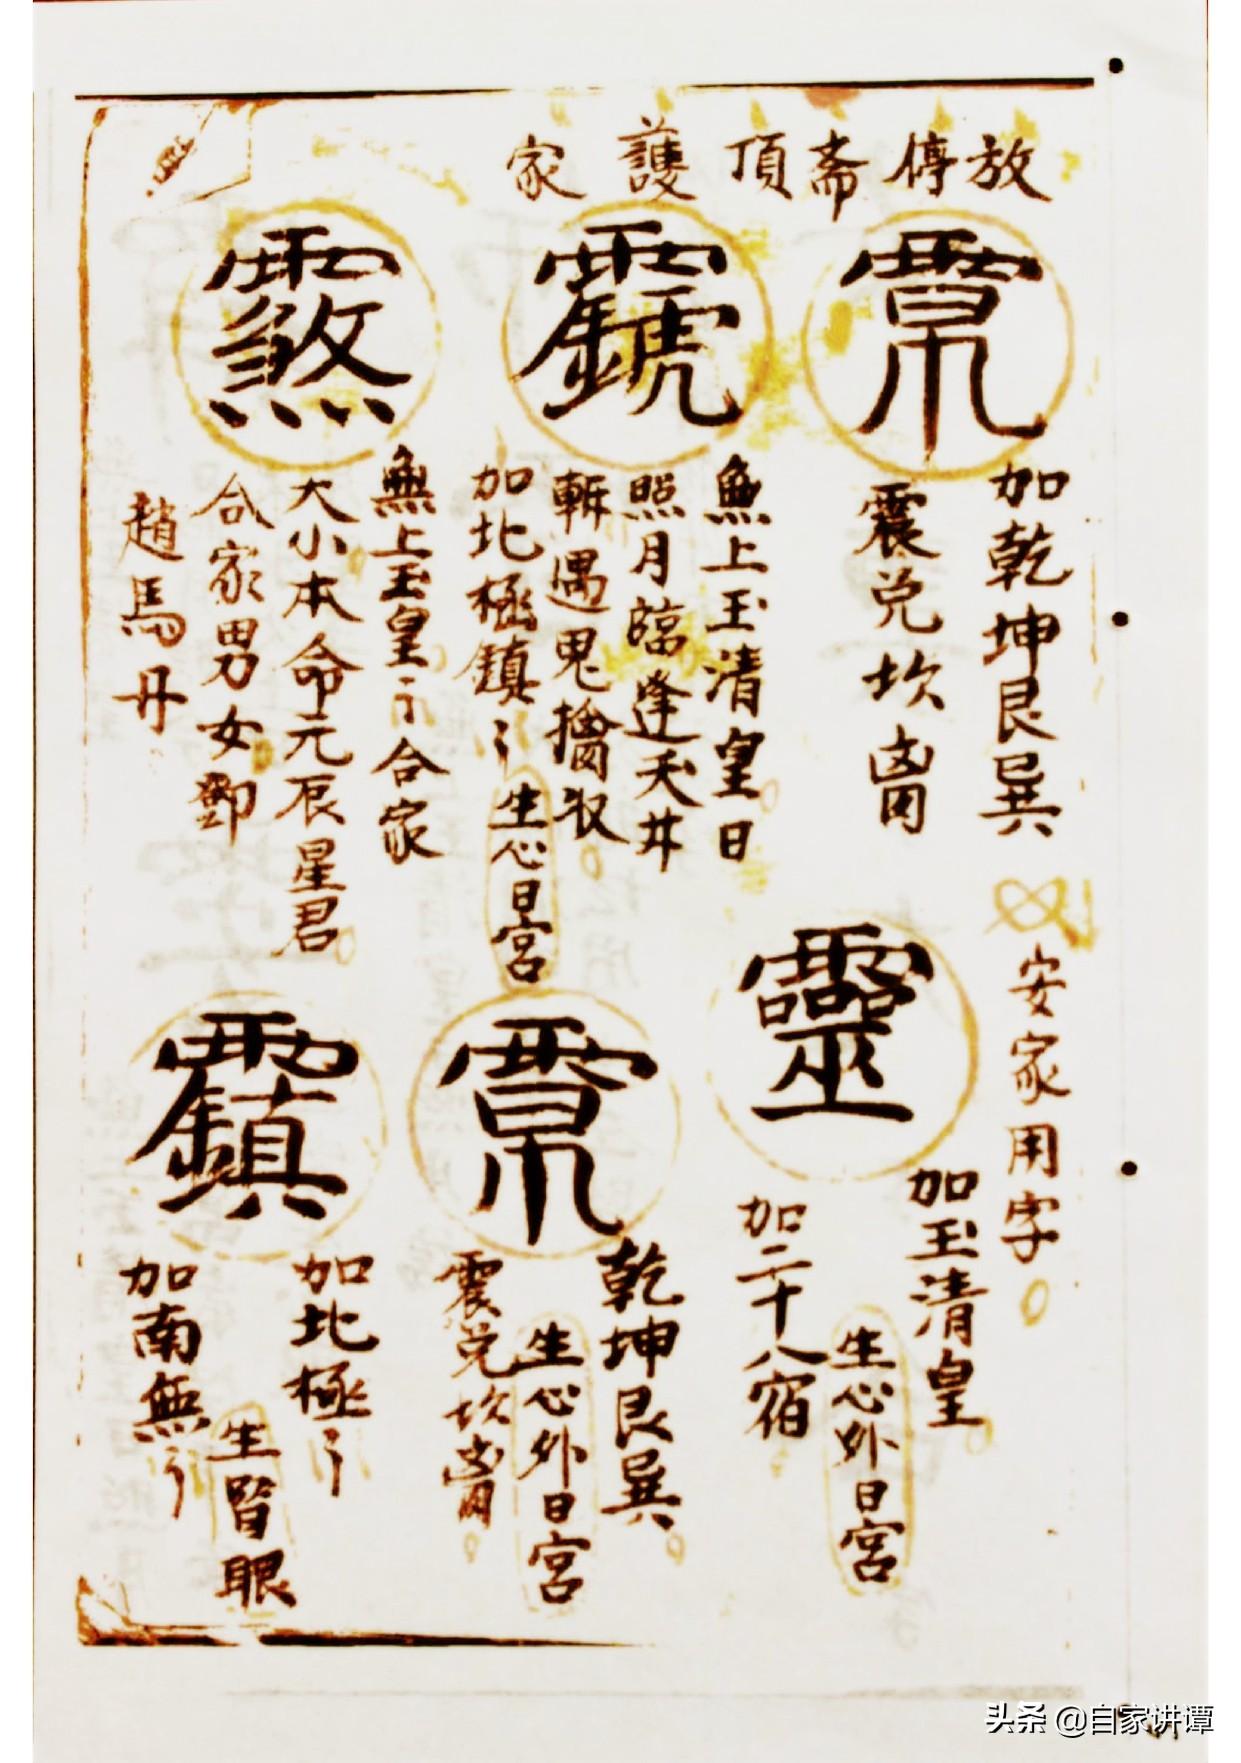 放停斎頂護家
加乾坤艮巽
震兌坎离
無上玉清皇日
照月臨逢天井
斬遇鬼擒收
加北極鎮
生心日宮
無上玉皇合家
大小本命元辰星君
合家男女鄧
趙馬丹
安家用字
靈
加玉清皇
生心外日宮
加二十八宿
乾坤艮巽
生心外日宮
震兌坎离
加北極
眼
加南無
头条 @自家讲谭